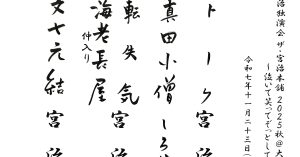 治独演会 ザ・宮治本舗 2025秋@大
〜泣いて笑ってぞっとして
令和七年十一月二十三日(
トーク 宮治
真田小僧 しろ
転失気 宮治
海老長屋
仲入り
文七元結 宮治